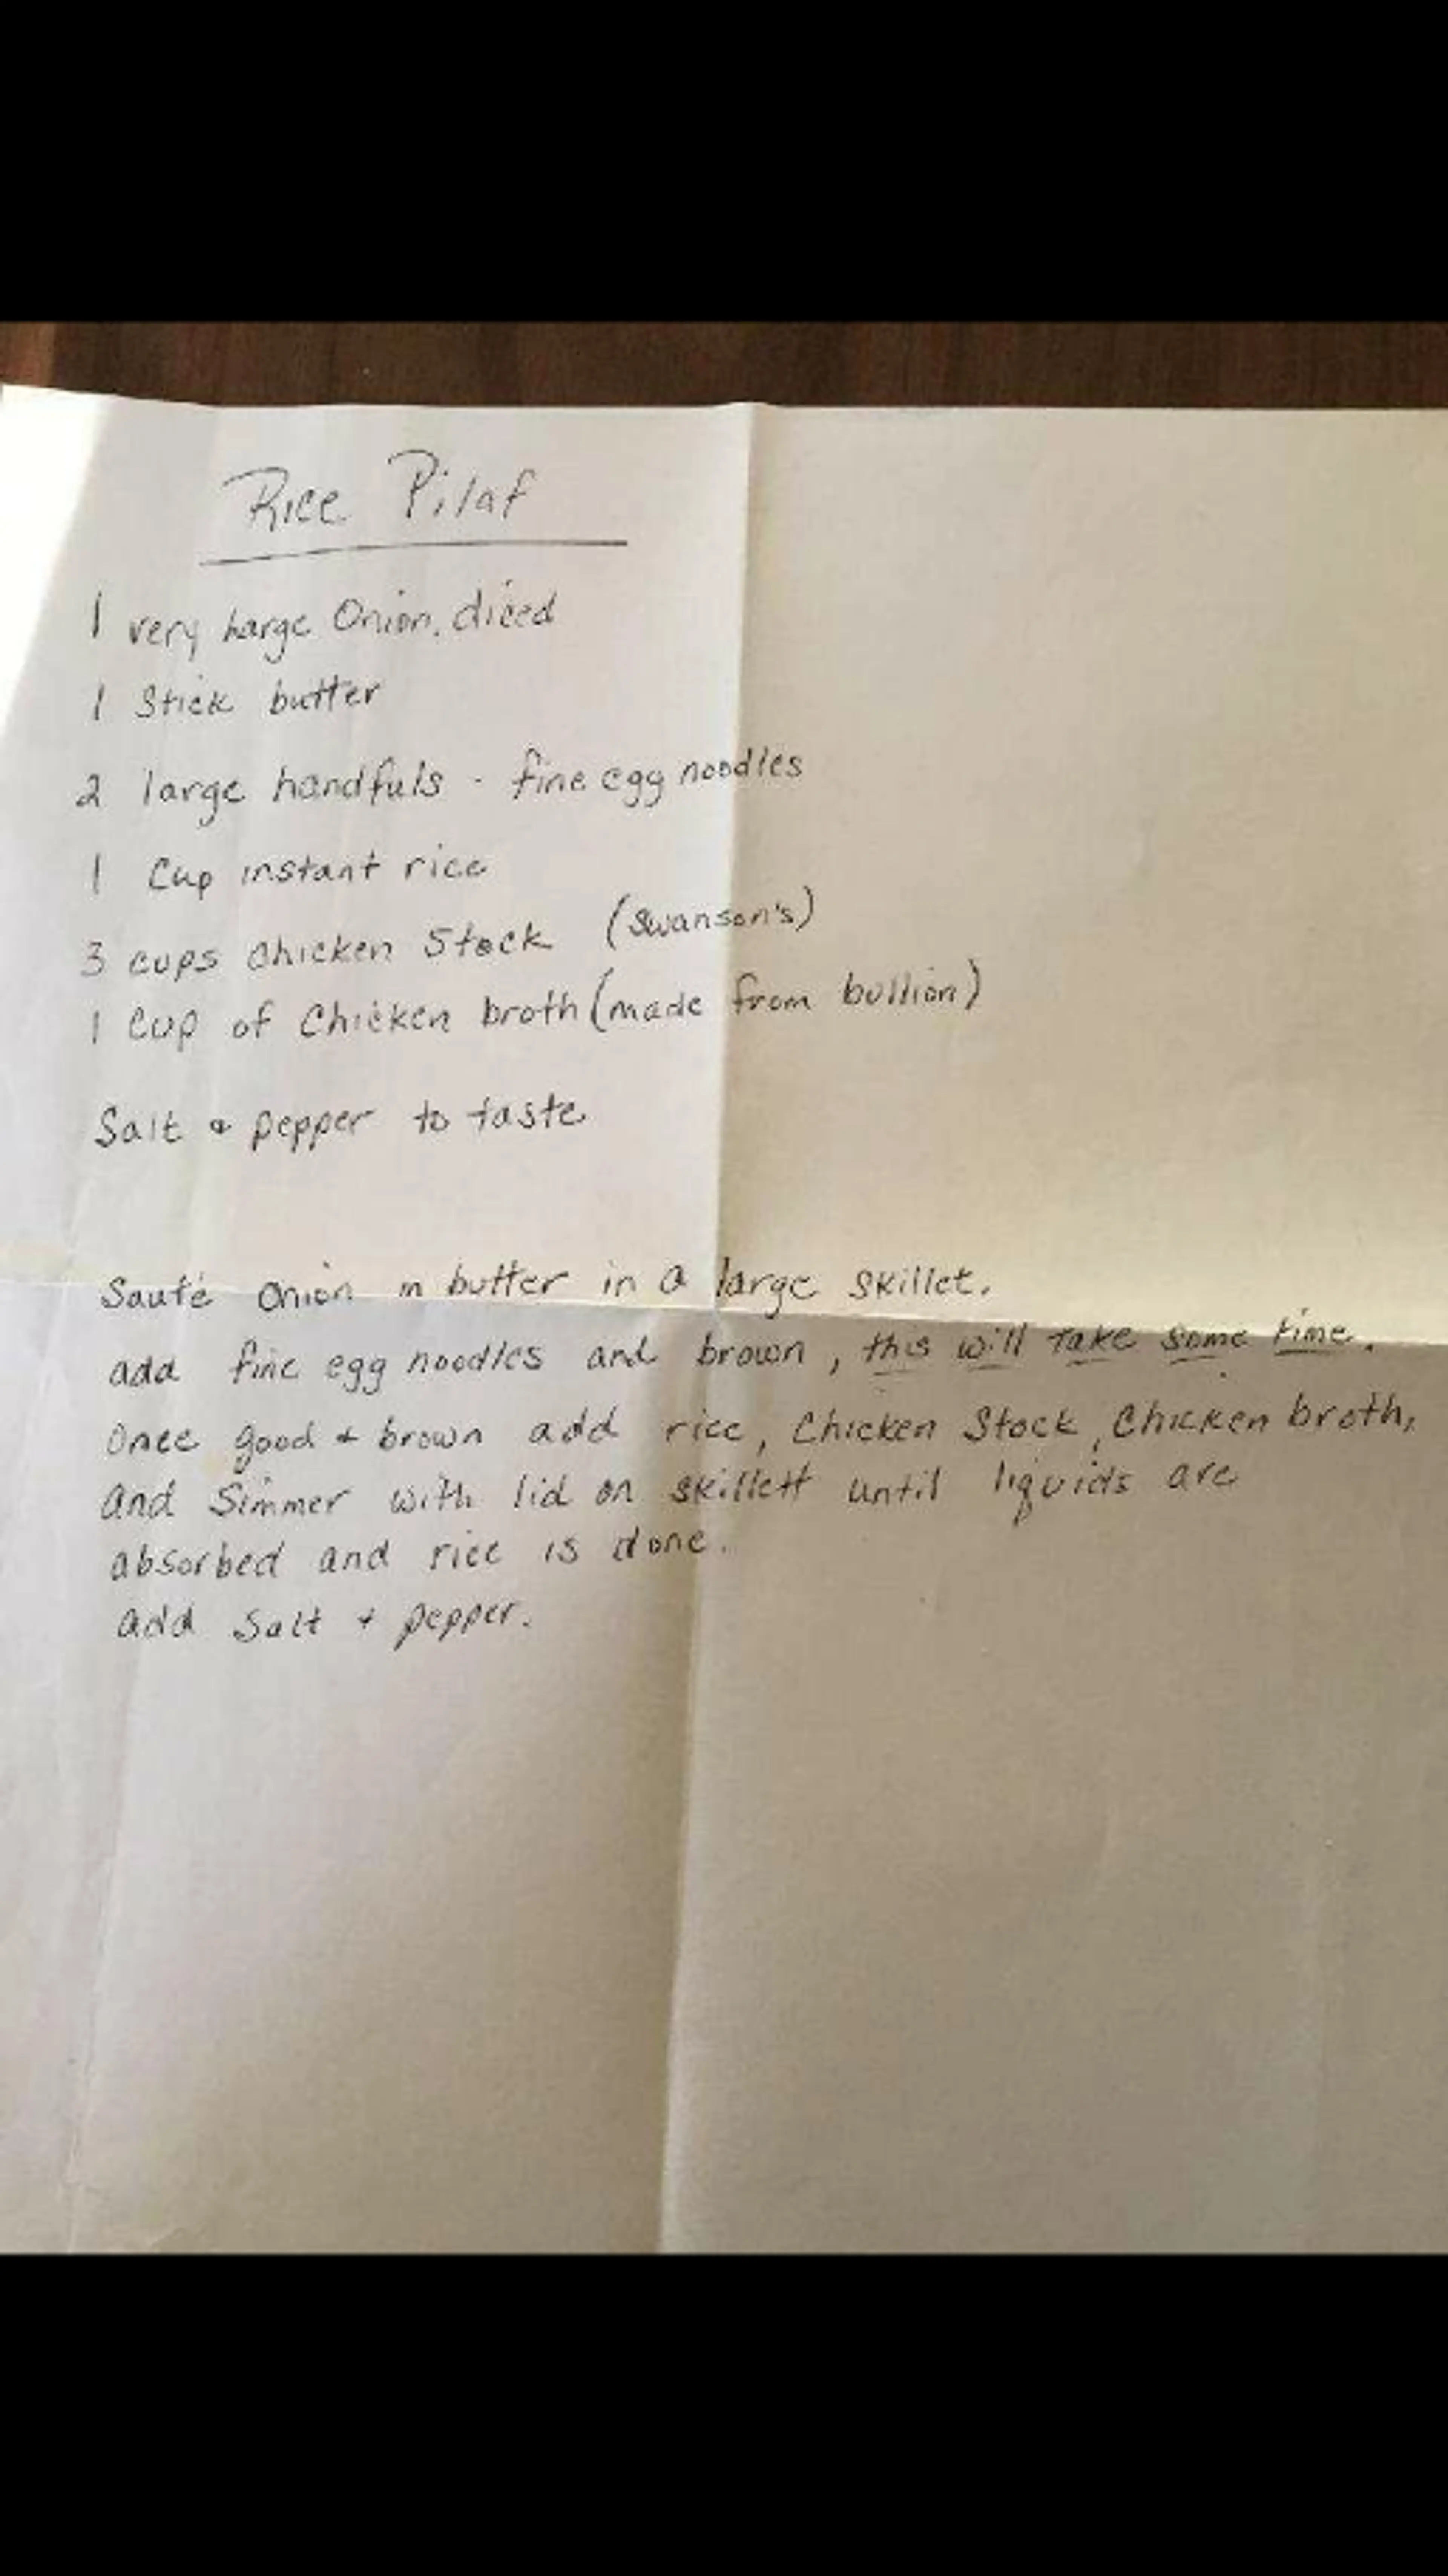 Rice Pilaf
1 very large Onion, diced
1 Stick butter
2 large handfuls - fine egg noodles
1 Cup instant rice
3 cups Chicken Stock (Swanson's)
1 Cup of Chicken broth (made from bullion)
Salt & pepper to taste
Sauté Onion in butter in a large skillet.
add fine egg noodles and brown, this will take some time.
Once good & brown add rice, Chicken Stock, Chicken broth,
and Simmer with lid on skillett until liquids are
absorbed and rice is done.
add Salt & pepper.